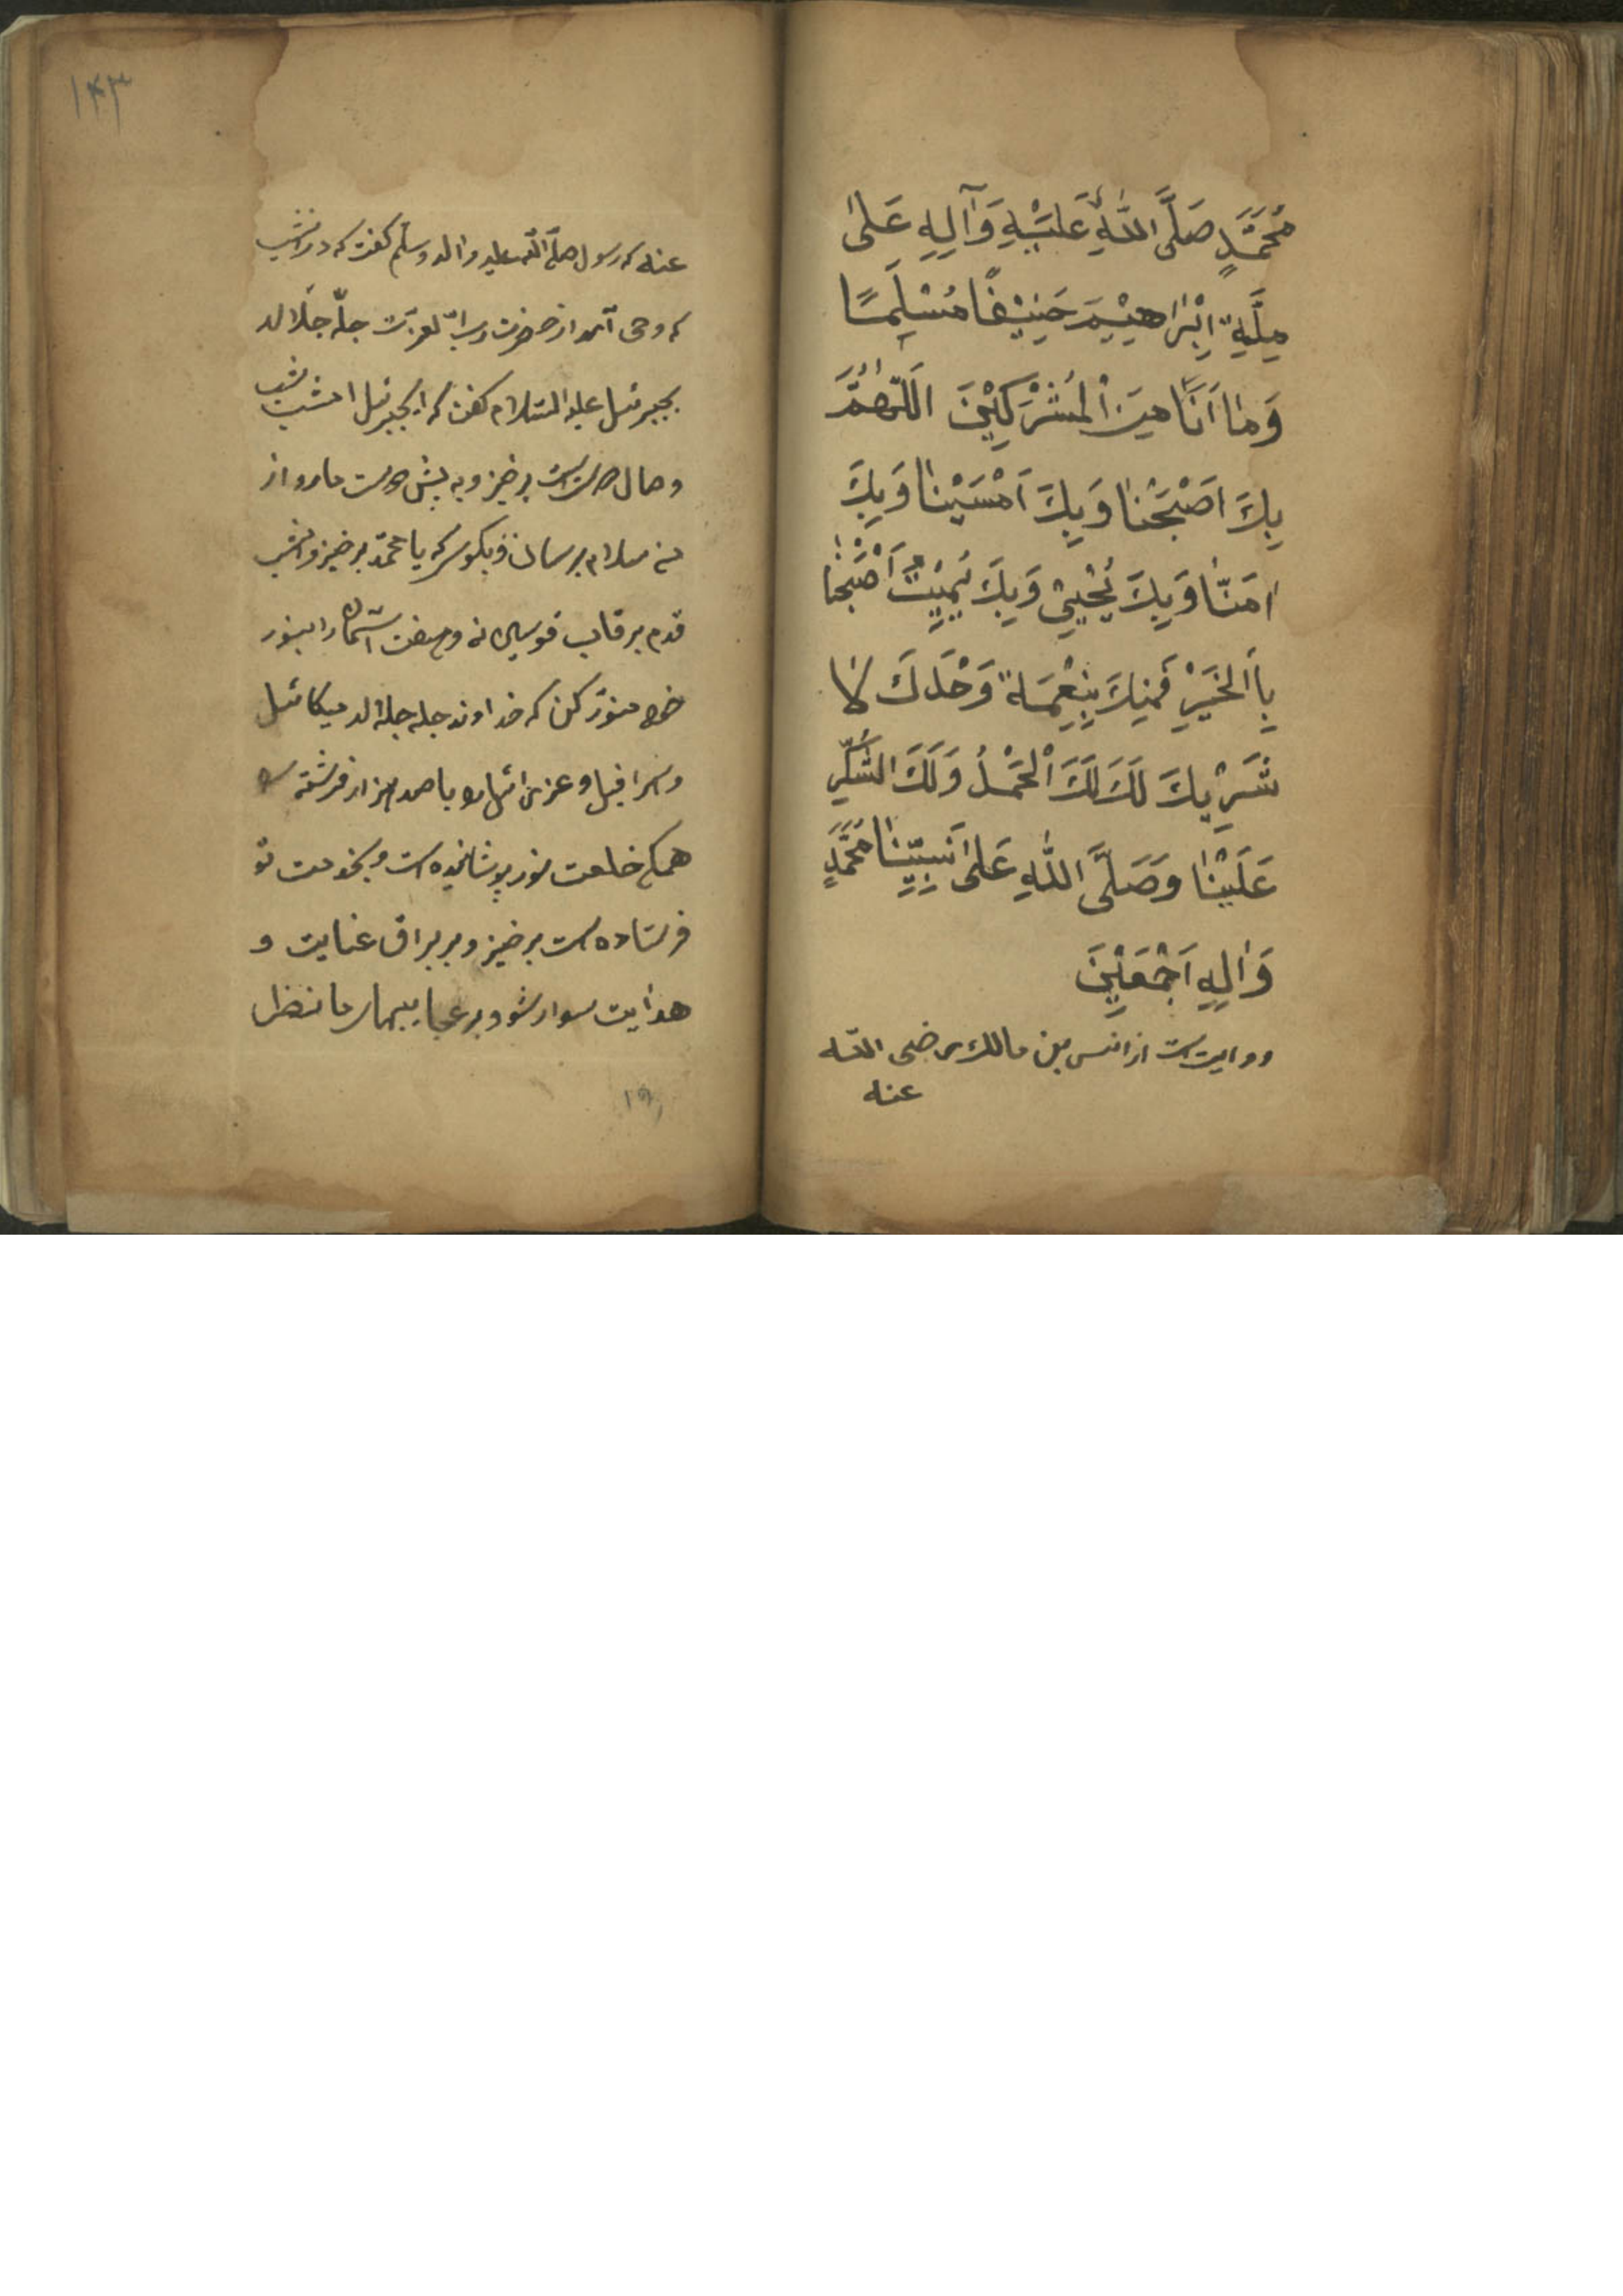 مُحَمَّدٍ صَلَّى اللهُ عَلَيْهِ وَآلِهِ عَلىٰ
مِلَّةِ اِبْرَاهِيْمَ حَنِيْفًا مُسْلِمًا
وَمٰا اَنَا مِنَ الْمُشْرِكِيْنَ اَللّٰهُمَّ
بِكَ اَصْبَحْنٰا وَبِكَ اَمْسَيْنٰا وَبِكَ
اٰمَنّٰا وَبِكَ يُحْيِيْ وَبِكَ يُمِيْتُ اَصْبَحْنٰا
بِاَلْخَيْرِ فَمِنِكَ بِنِعْمَة وَحْدَكَ لٰا
شَرِيْكَ لَكَ لَكَ اَلْحَمْدُ وَلَكَ الشُّكْرِ
عَلَيْنٰا وَصَلَّى اللّٰهِ عَلىٰ نَبِيِّنٰا مُحَمَّدٍ
وَاٰلِهِ اَجْمَعِيْنَ
روايت است از انس بن مالك رضى اللّه
عنه
۱۴۳
عنه كه رسول صلّى اللّه عليه واله وسلّم كفت كه در انشب
كه وحى آمد از حضرت رب العزّت جلّ جلاله
بجبرئيل عليه السّلام كفت كه اى جبرئيل امشب شب
وصال است برخيز وبه پيش دوست ما رو از
من سلام برسان وبكو كه يا محمّد برخيز وامشب
قدم بر قاب قوسين نه وهفت آسمان را بنور
خود منوّر كن كه خداوند جله جلاله ميكائيل
واسرافيل وعزرائيل را با صد هزار فرشته
همه خلعت نور پوشانيده است وبخدمت تو
فرستاده است برخيز وبر براق عنايت و
هدايت سوار شو وبر عجايبهاى ما نظر